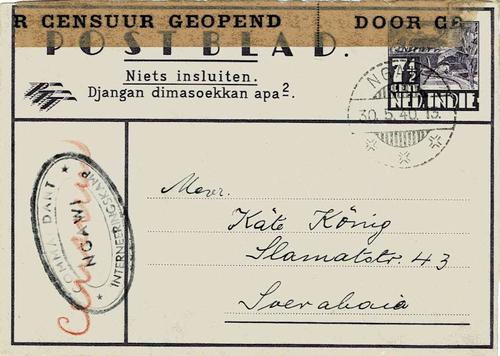 R CENSUUR GEOPEND DOOR CE
POSTBLAD.
Niets insluiten.
Djangan dimasoekkan apa².
7½
CENT
NED. INDIE
NGAWI
30.5.40.13.
COMMANDANT
NGAWI
INTERNEERINGSKAMP
Mevr.
Käte König
Slamatstr. 43
Soerabaia